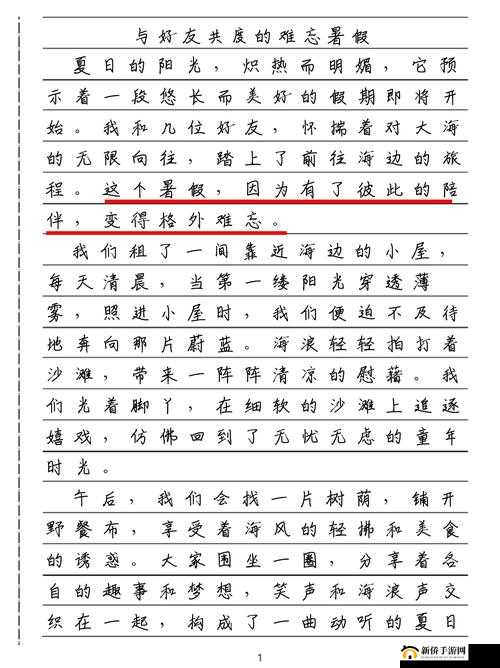 与好友共度的难忘暑假
夏日的阳光，炽热而明媚，它预
示着一段悠长而美好的假期即将开
始。我和几位好友，怀揣着对大海
的无限向往，踏上了前往海边的旅
程。这个暑假，因为有了彼此的陪
伴，变得格外难忘。
我们租了一间靠近海边的小屋，
每天清晨，当第一缕阳光穿透薄
雾，照进小屋时，我们便迫不及待
地奔向那片蔚蓝。海浪轻轻拍打着
沙滩，带来一阵阵清凉的慰藉。我
们光着脚丫，在细软的沙滩上追逐
嬉戏，仿佛回到了无忧无虑的童年
时光。
午后，我们会找一片树荫，铺开
野餐布，享受着海风的轻拂和美食
的诱惑。大家围坐一圈，分享着各
自的趣事和梦想，笑声和海浪声交
织在一起，构成了一曲动听的夏日
1
新侨手游网